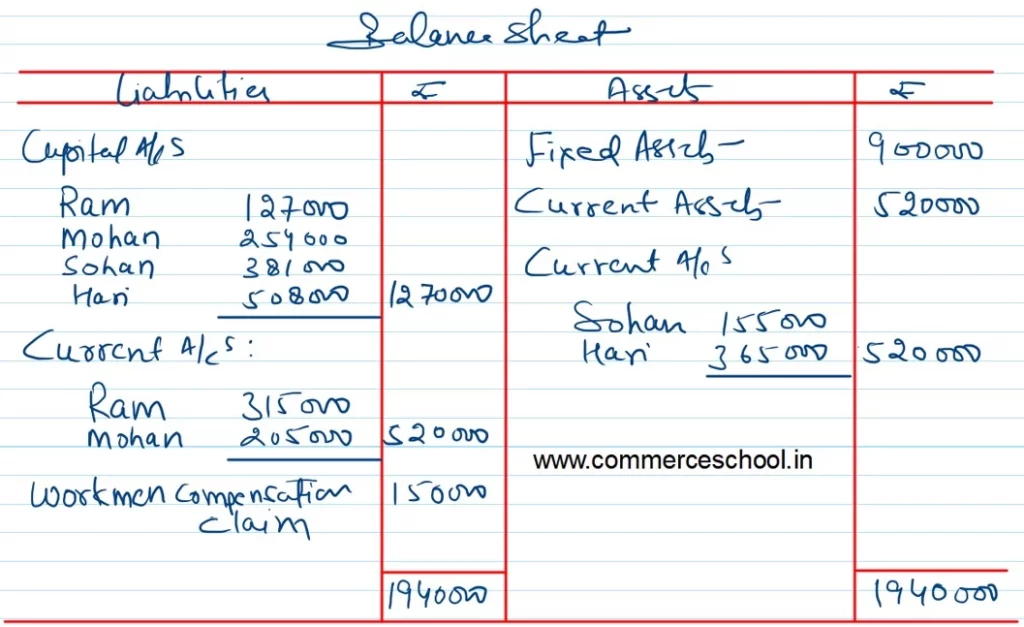 Balance Sheet
Liabilities ₹ Assets ₹
Capital A/c S Fixed Assets- 900000
Ram 127000 Current Assets- 520000
Mohan 254000
Sohan 381000 Current A/c S
Hari 508000 1270000
Sohan 155000
Current A/c S: Hari 365000 520000
Ram 315000
Mohan 205000 520000
www.commerceschool.in
Workmen Compensation 150000
Claim
1940000 1940000